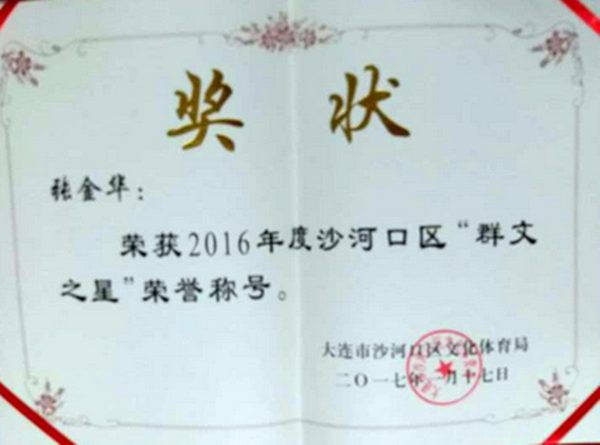 奖状
张金华：
荣获2016年度沙河口区“群文
之星”荣誉称号。
大连市沙河口区文化体育局
二〇一七年一月十七日